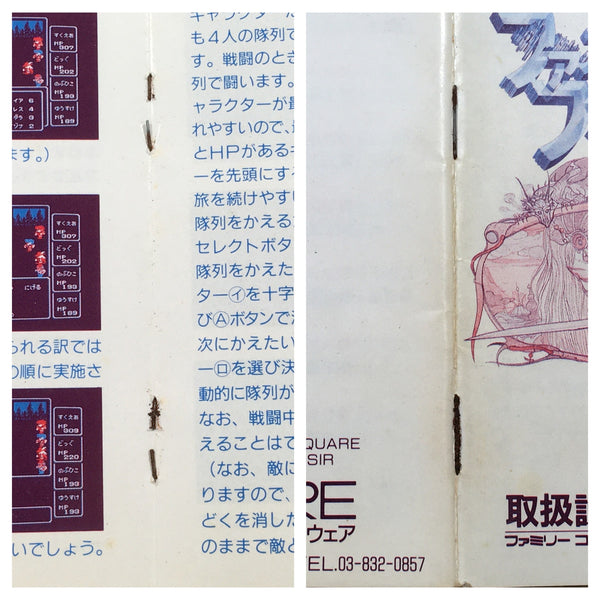 すくえあ
HP
307
どっく
HP
202
のぶひこ
HP
193
ゆうすけ
HP
189
イア 6
レス 4
ジナ 2
ます。)
すくえあ
HP
307
どっく
HP
202
のぶひこ
HP
193
ゆうすけ
HP
189
にげる
られる訳では
の順に実施さ
すくえあ
HP
309
どっく
HP
220
のぶひこ
HP
193
ゆうすけ
HP
189
いでしょう。
キャラクターた
も4人の隊列で
す。戦闘のとき
列で闘います。
ャラクターが最
れやすいので、
とHPがあるキ
ーを先頭にする
旅を続けやすい
隊列をかえる
セレクトボタ
隊列をかえた
ター㋑を十字
びⒶボタンで
次にかえたい
ー㋺を選び決
動的に隊列が
なお、戦闘中
えることはで
(なお、敵に
りますので、
どくを消した
のままで敵と
ファイ
QUARE
SIR
RE
ウェア
TEL.03-832-0857
取扱説
ファミリー コ